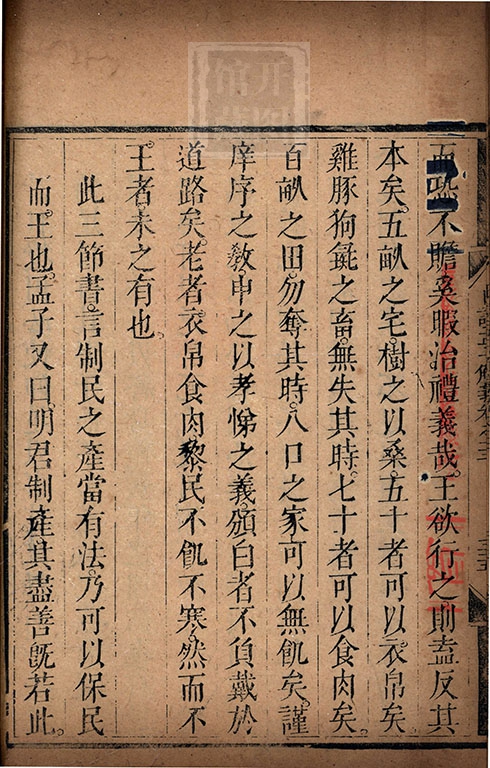 而恐不贍奚暇治禮義哉。王欲行之則盍反其
本矣。五畝之宅樹之以桑。五十者可以衣帛矣
雞豚狗彘之畜。無失其時。七十者可以食肉矣。
百畝之田勿奪其時。八口之家可以無飢矣。謹
庠序之教。申之以孝悌之義。頒白者不負戴於
道路矣。老者衣帛食肉。黎民不飢不寒。然而不
王者。未之有也。
此三節書。言制民之產當有法。乃可以保民
而王也。孟子又曰。明君制產其盡善旣若此。